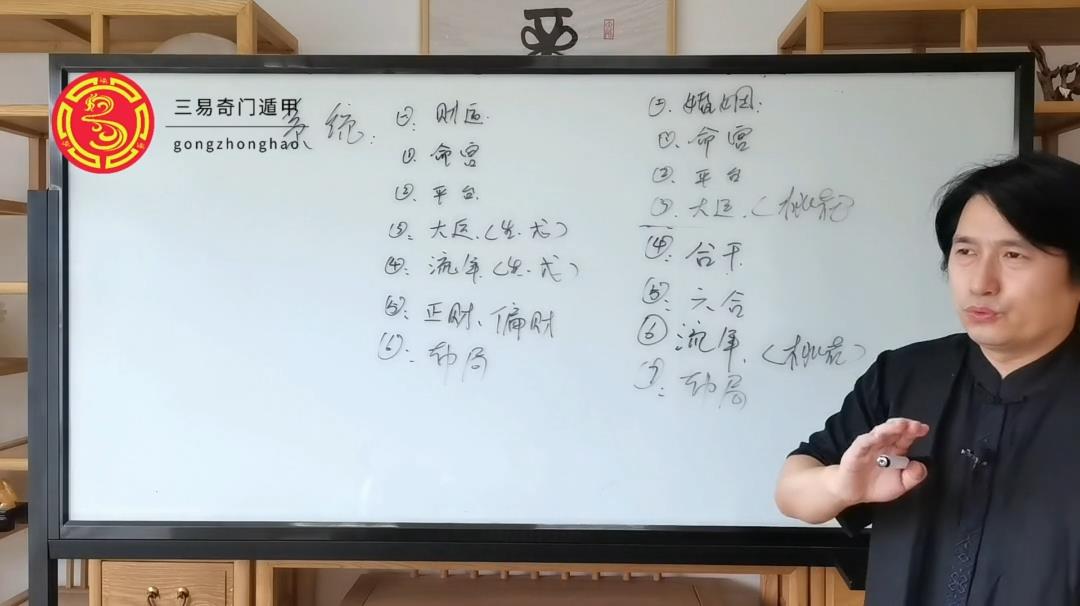 三易奇门遁甲
gongzhonghao
系统:
①: 财运:
①. 命宫
②. 平台
③: 大运.(生.戈)
④: 流年(生.戈)
⑤: 正财、偏财
⑥: 动局
②: 婚姻:
①. 命宫
②. 平台
③. 大运.(桃花)
④: 合干
⑤: 六合
⑥ 流年.(桃花)
⑦: 动局